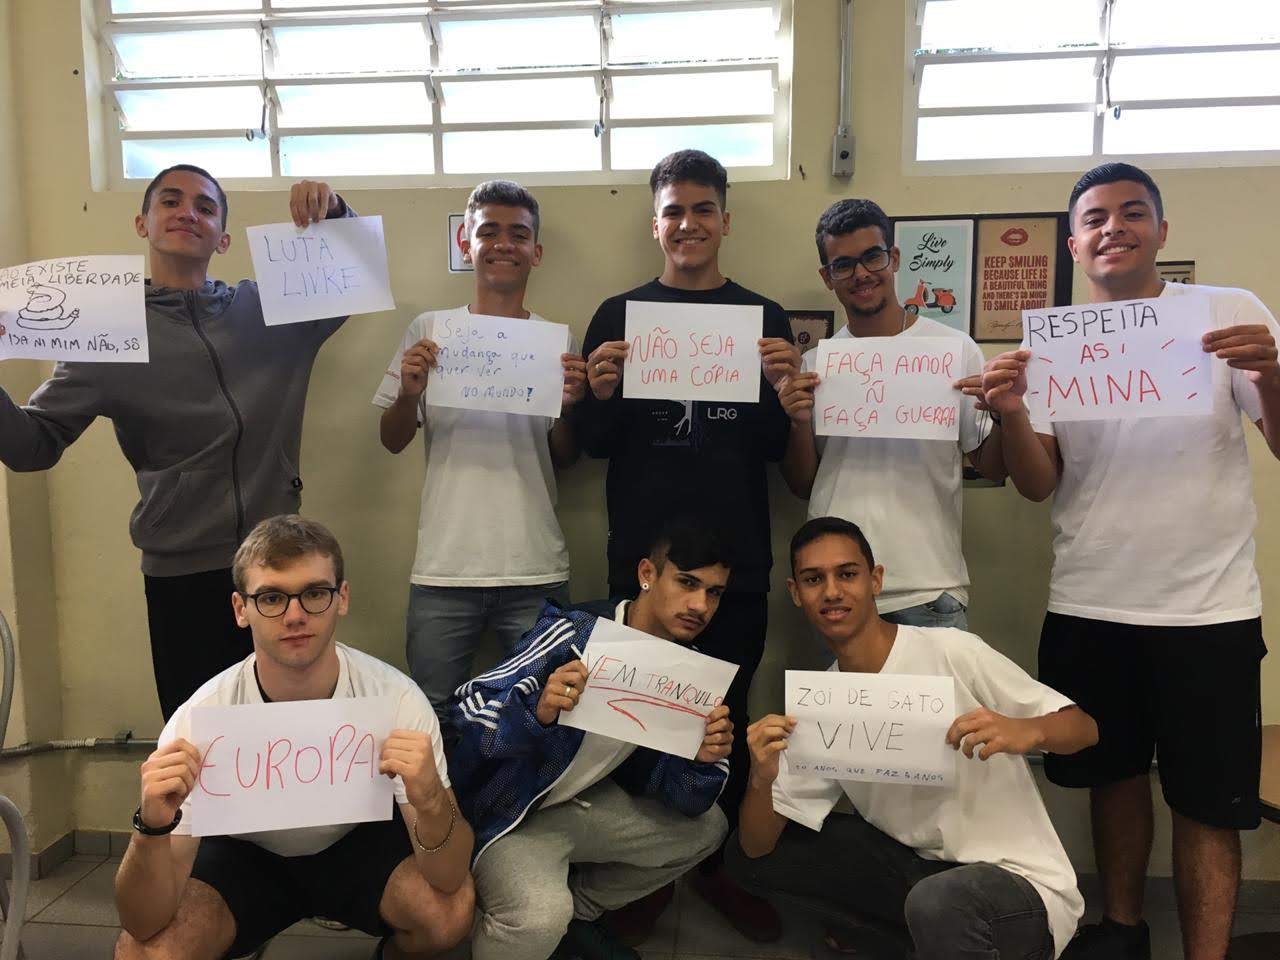 NÃO EXISTE
MEIA LIBERDADE
PISA NI MIM NÃO, SÔ
LUTA
LIVRE
Seja a
mudança que
quer ver
NO MUNDO!
NÃO SEJA
UMA CÓPIA
LRG
FAÇA AMOR
Ñ
FAÇA GUERRA
Live
Simply
KEEP SMILING
BECAUSE LIFE IS
A BEAUTIFUL THING
AND THERE'S SO MUCH
TO SMILE ABOUT
RESPEITA
AS
MINA
EUROPA
VEM TRANQULO
ZOI DE GATO
VIVE
20 ANOS QUE FAZ 6 ANOS